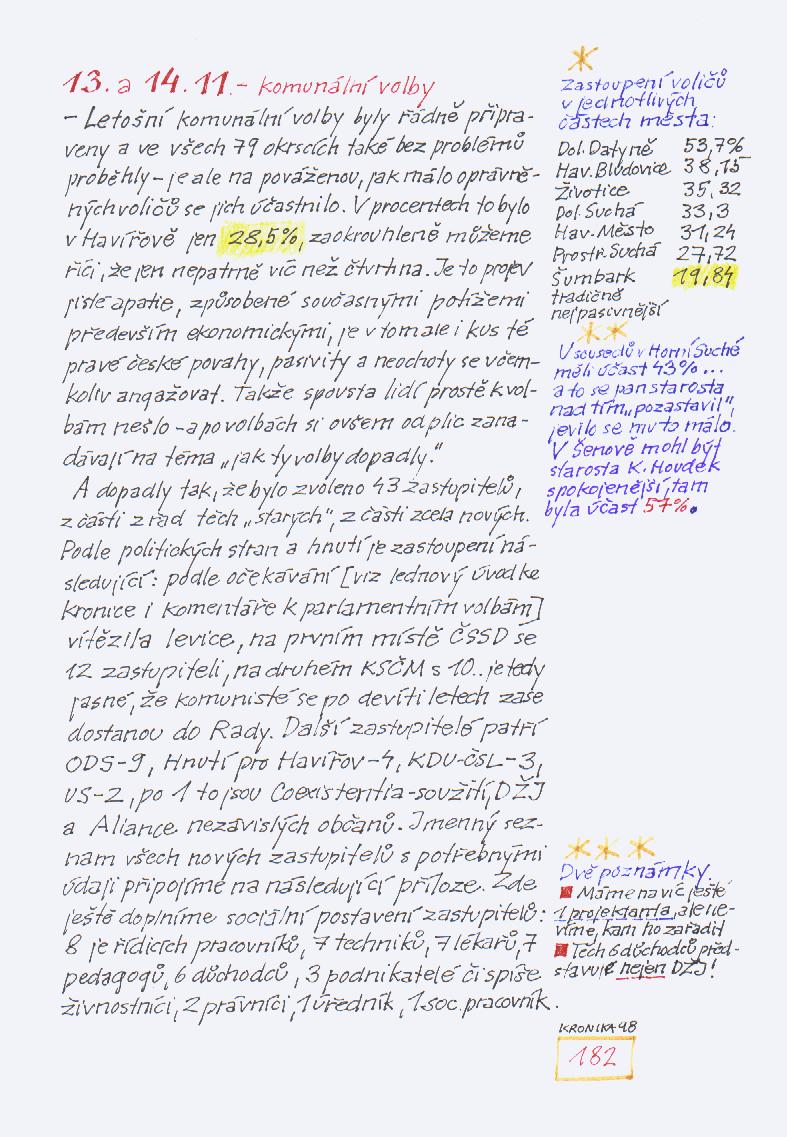 13. a 14.11. – komunální volby
– Letošní komunální volby byly řádně připra-
veny a ve všech 79 okrscích také bez problémů
proběhly – je ale na pováženou, jak málo oprávně-
ných voličů se jich účastnilo. V procentech to bylo
v Havířově jen 28,5%, zaokrouhleně můžeme
říci, že jen nepatrně víc než čtvrtina. Je to projev
jisté apatie, způsobené současnými potížemi
především ekonomickými, je v tom ale i kus té
pravé české povahy, pasivity a neochoty se včem-
koliv angažovat. Takže spousta lidí prostě k vol-
bám nešlo – a po volbách si ovšem od plic zana-
dávají na téma „jak ty volby dopadly."
A dopadly tak, že bylo zvoleno 43 zastupitelů,
z části z řad těch „starých", z části zcela nových.
Podle politických stran a hnutí je zastoupení ná-
sledující: podle očekávání [viz lednový úvod ke
kronice i komentáře k parlamentním volbám]
vítězila levice, na prvním místě ČSSD se
12 zastupiteli, na druhém KSČM s 10.. je tedy
jasné, že komunisté se po devíti letech zase
dostanou do Rady. Další zastupitelé patří
ODS-9, Hnutí pro Havířov-4, KDU-ČSL-3,
US-2, po 1 to jsou Coexistentia-soužití, DŽJ
a Aliance nezávislých občanů. Jmenný sez-
nam všech nových zastupitelů s potřebnými
údaji připojíme na následující příloze. Zde
ještě doplníme sociální postavení zastupitelů:
8 je řídících pracovníků, 7 techniků, 7 lékařů, 7
pedagogů, 6 důchodců, 3 podnikatelé či spíše
živnostníci, 2 právníci, 1 úředník, 1 soc. pracovník.
*
Zastoupení voličů
v jednotlivých
částech města:
Dol. Datyně 53,7%
Hav. Bludovice 38,15
Životice 35,32
Dol. Suchá 33,3
Hav. Město 31,24
Prostř. Suchá 27,72
Šumbark 19,84
tradičně
nejpasivnější
**
U sousedů v Horní Suché
měli účast 43% ...
a to se pan starosta
nad tím „pozastavil",
jevilo se mu to málo.
V Šenově mohl být
starosta K. Houdek
spokojenější, tam
byla účast 57%.
***
Dvě poznámky.
■ Máme navíc ještě
1 projektanta, ale ne-
víme, kam ho zařadit
■ Těch 6 důchodců před-
stavuje nejen DŽJ!
KRONIKA 98
182